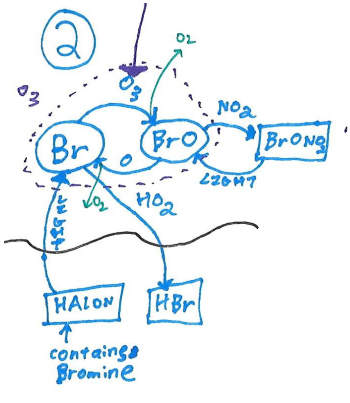 2
O2
O3
O3
NO2
Br
BrO
BrONO2
O
LIGHT
O2
HO2
LIGHT
HALON
HBr
contains
Bromine